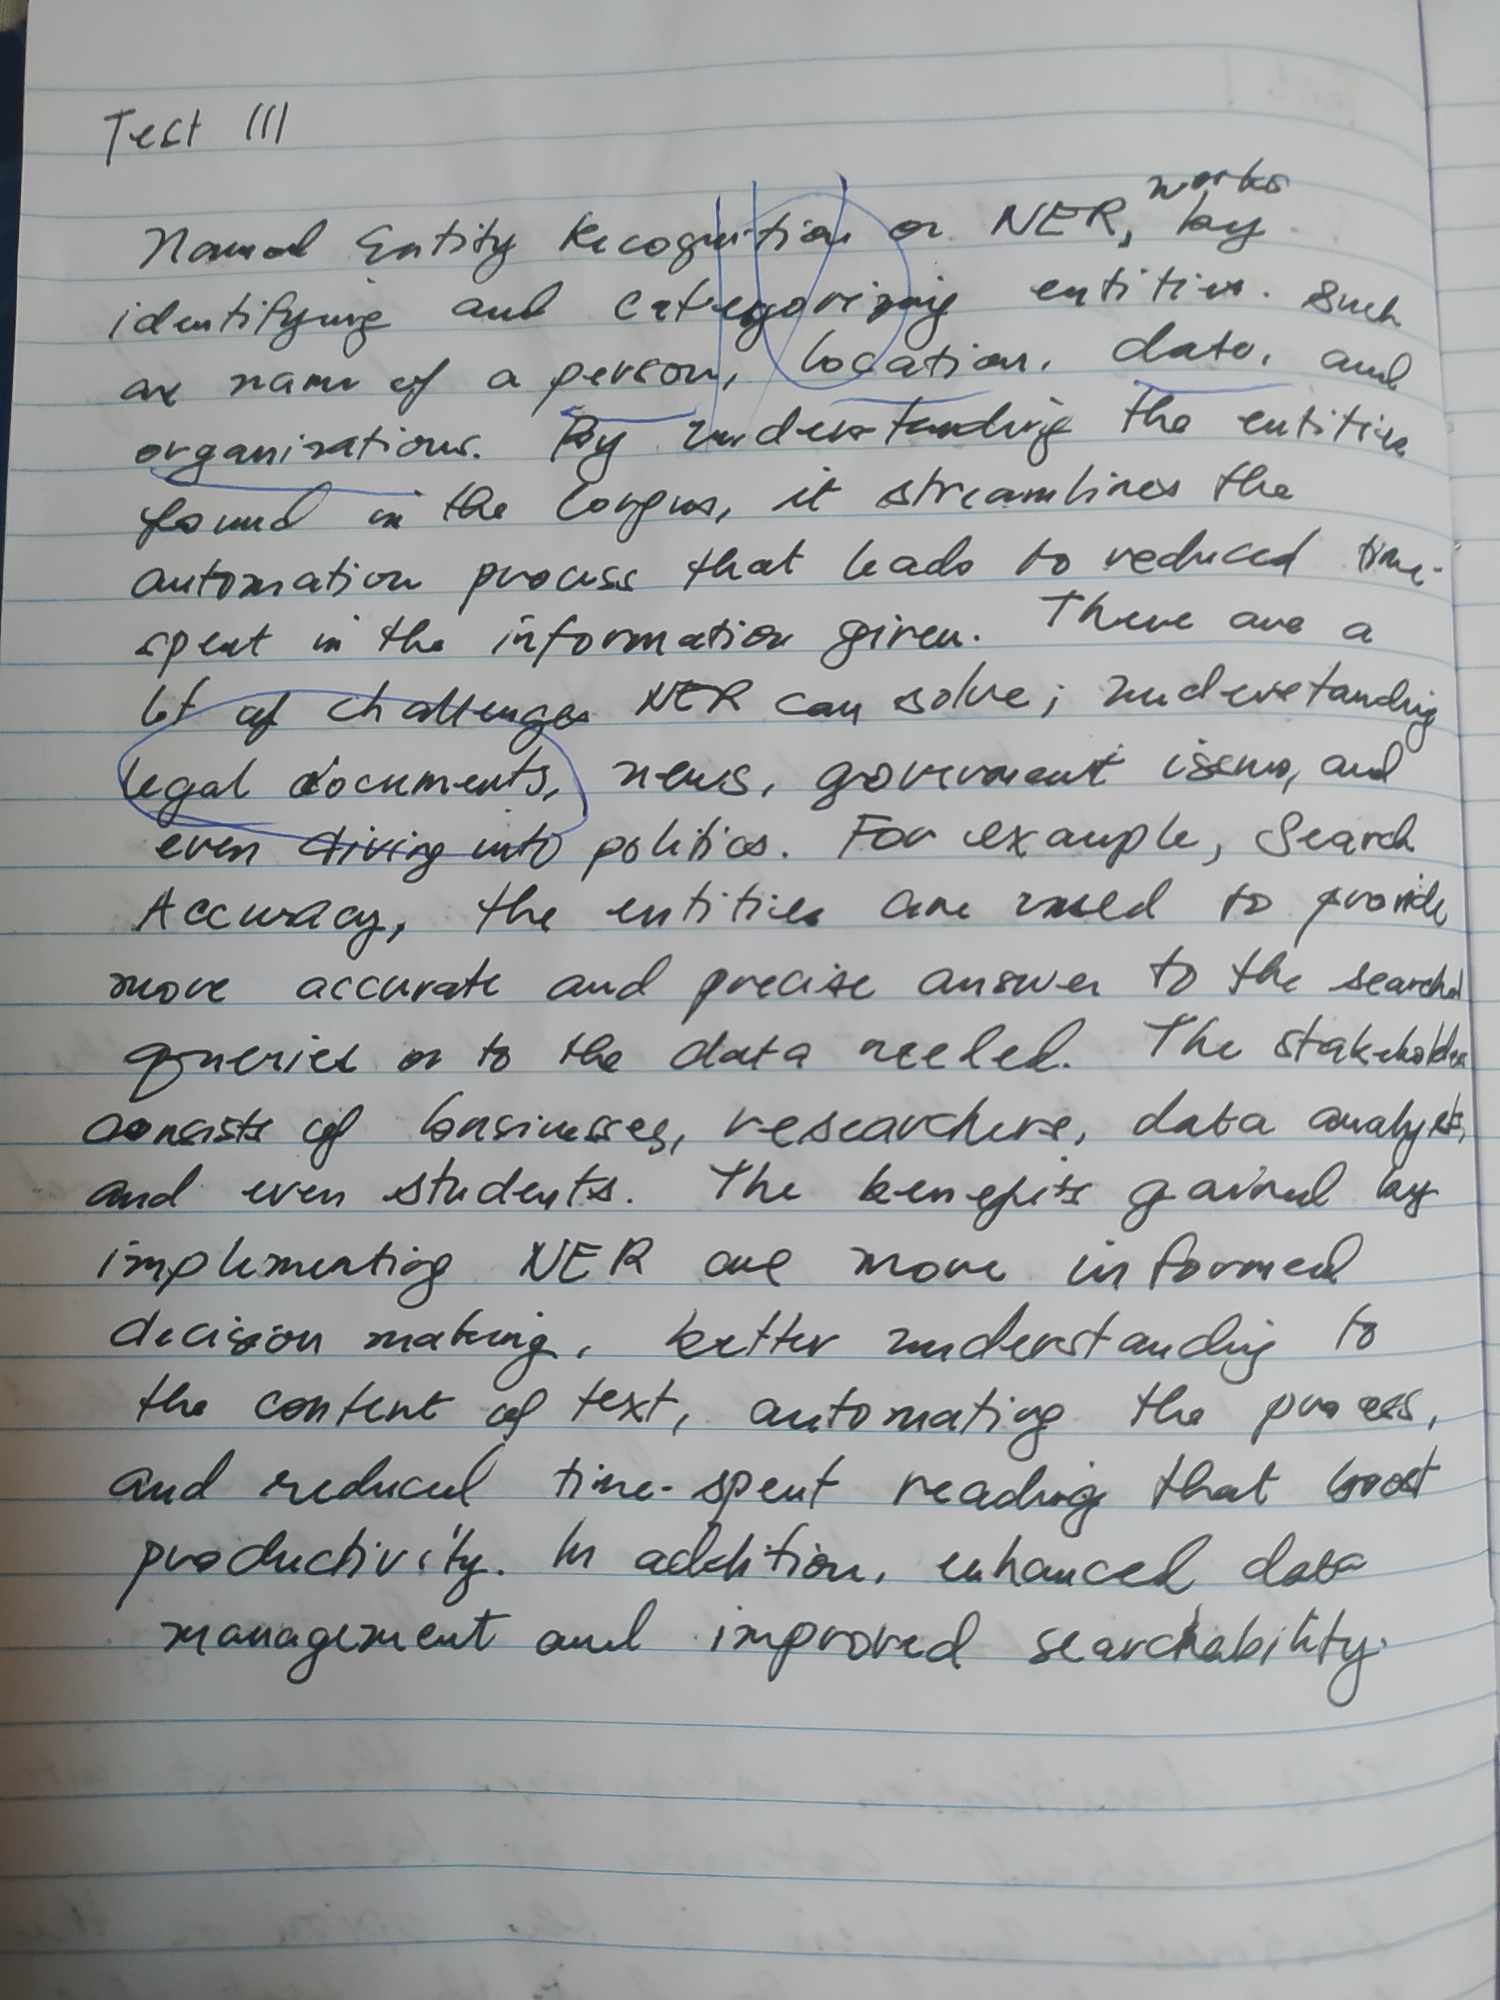 Test III
Named Entity Recognition or NER, works by
identifying and categorizing entities. such
as name of a person, location, date, and
organizations. By understanding the entities
found in the Corpus, it streamlines the
automation process that leads to reduced time-
spent in the information given. There are a
lot of challenges NER can solve; understanding
legal documents, news, government issues, and
even diving into politics. For example, Search
Accuracy, the entities are used to provide
more accurate and precise answer to the search
queries or to the data needed. The stakeholders
consists of businesses, researchers, data analysts,
and even students. The benefits gained by
implementing NER are more informed
decision making, better understanding to
the content of text, automating the process,
and reduced time-spent reading that boost
productivity. In addition, enhanced data
management and improved searchability.